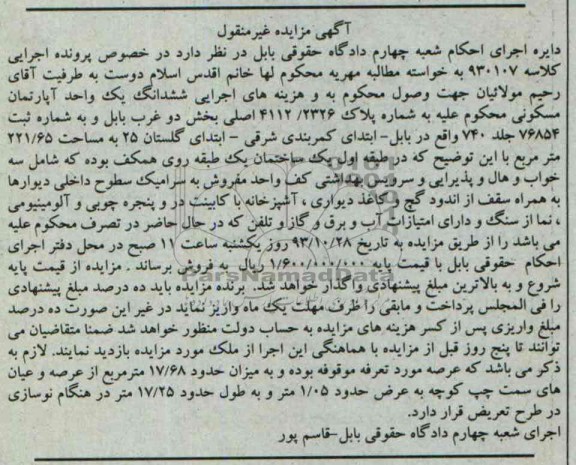 آگهی مزایده غیرمنقول
دایره اجرای احکام شعبه چهارم دادگاه حقوقی بابل در نظر دارد در خصوص پرونده اجرایی
کلاسه ۹۳۰۱۰۷ به خواسته مطالبه مهریه محکوم لها خانم اقدس اسلام دوست به طرفیت آقای
رحیم مولائیان جهت وصول محکوم به و هزینه های اجرایی ششدانگ یک واحد آپارتمان
مسکونی محکوم علیه به شماره پلاک ۴۱۱۲/۲۳۲۶ اصلی بخش دو غرب بابل و به شماره ثبت
۷۶۸۵۴ جلد ۷۴۰ واقع در بابل- ابتدای کمربندی شرقی - ابتدای گلستان ۲۵ به مساحت ۲۲۱/۶۵
متر مربع با این توضیح که در طبقه اول یک ساختمان یک طبقه روی همکف بوده که شامل سه
خواب و هال و پذیرایی و سرویس بهداشتی کف واحد مفروش به سرامیک سطوح داخلی دیوارها
به همراه سقف از اندود گچ و کاغذ دیواری ، آشپزخانه با کابینت در و پنجره چوبی و آلومینیومی
، نما از سنگ و دارای امتیازات آب و برق و گاز و تلفن که در حال حاضر در تصرف محکوم علیه
می باشد را از طریق مزایده به تاریخ ۹۳/۱۰/۲۸ روز یکشنبه ساعت ۱۱ صبح در محل دفتر اجرای
احکام حقوقی بابل با قیمت پایه ۱/۶۰۰/۰۰۰/۰۰۰ ریال به فروش برساند . مزایده از قیمت پایه
شروع و به بالاترین مبلغ پیشنهادی واگذار خواهد شد. برنده مزایده باید ده درصد مبلغ پیشنهادی
را فی المجلس پرداخت و مابقی را ظرف مهلت یک ماه واریز نماید در غیر این صورت ده درصد
مبلغ واریزی پس از کسر هزینه های مزایده به حساب دولت منظور خواهد شد ضمنا متقاضیان می
توانند تا پنج روز قبل از مزایده با هماهنگی این اجرا از ملک مورد مزایده بازدید نمایند. لازم به
ذکر می باشد که عرصه مورد تعرفه موقوفه بوده و به میزان حدود ۱۷/۶۸ مترمربع از عرصه و عیان
های سمت چپ کوچه به عرض حدود ۱/۰۵ متر و به طول حدود ۱۷/۲۵ متر در هنگام نوسازی
در طرح تعریض قرار دارد.
اجرای شعبه چهارم دادگاه حقوقی بابل-قاسم پور
ParsNamadData